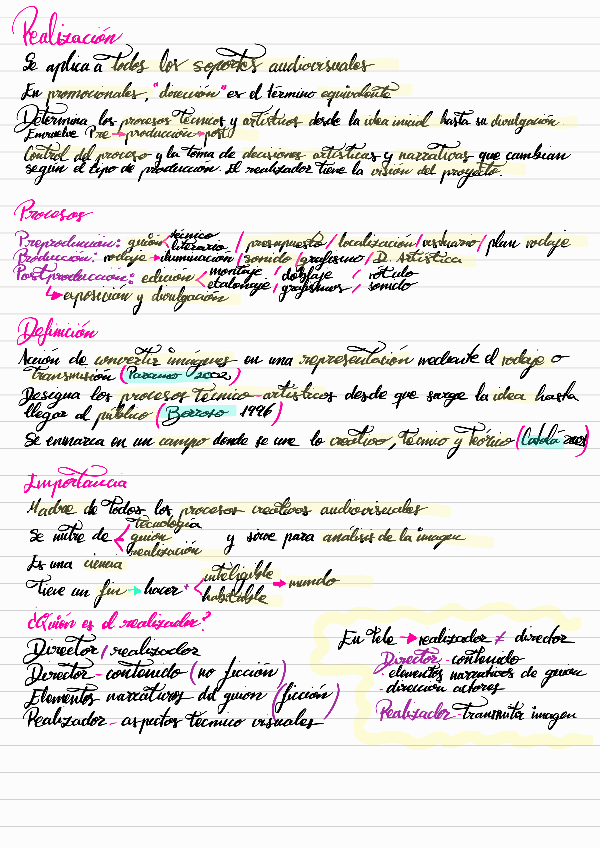 Realización
Se aplica a todos los soportes audiovisuales
En promocionales, "dirección" es el término equivalente
Determina los procesos técnicos y artísticos desde la idea inicial hasta su divulgación
Envuelve Pre → producción → post
Control del proceso y la toma de decisiones artísticas y narrativas que cambian
según el tipo de producción. El realizador tiene la visión del proyecto.
Procesos
Preproducción: guion < técnico literario / presupuesto / localización / vestuario / plan rodaje
Producción: rodaje → iluminación / sonido / grafismo / D. Artística
Postproducción: edición < montaje etalonaje / doblaje / grafismos / rótulo / sonido
↳ exposición y divulgación
Definición
Acción de convertir imágenes en una representación mediante el rodaje o
transmisión (Paramo 2002)
Designa los procesos técnico-artísticos desde que surge la idea hasta
llegar al público (Barroso 1996)
Se enmarca en un campo donde se une lo creativo, técnico y teórico (Catalá
Importancia
Madre de todos los procesos creativos audiovisuales
Se nutre de < tecnología guion realización y sirve para análisis de la imagen
Es una ciencia
Tiene un fin → hacer < inteligible habitable → mundo
¿Quién es el realizador?
Director / realizador
Director - contenido (no ficción)
Elementos narrativos del guion (ficción)
Realizador - aspectos técnico visuales
En tele → realizador ≠ director
Director - contenido
· elementos narrativos de guion
· dirección actores
Realizador - transmitir imagen